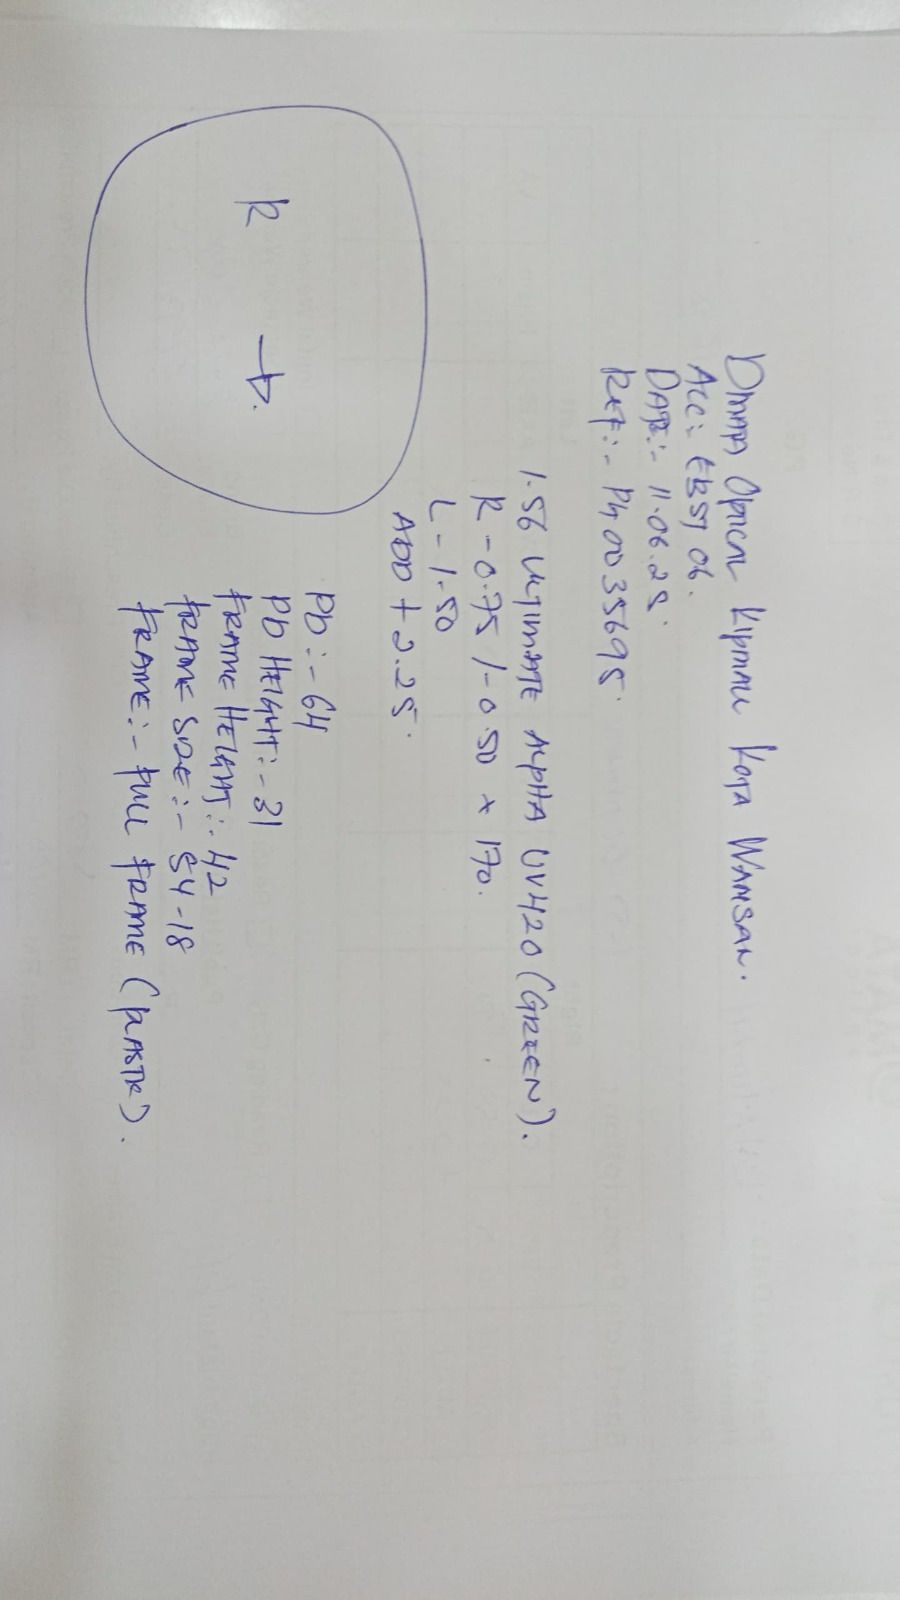 Dmata Optical Kipmall Kota Warisan.
Acc:- EB5706.
DATE:- 11.06.25.
REF:- PG0035695.
1.56 ULTIMATE ALPHA UV420 (GREEN).
R -0.75 / -0.50 x 170.
L -1.50
ADD + 2.25.
PD:- 64
PD HEIGHT:- 31
FRAME HEIGHT:- 42
FRAME SIZE:- 54-18
FRAME:- FULL FRAME (PLASTIK).
R